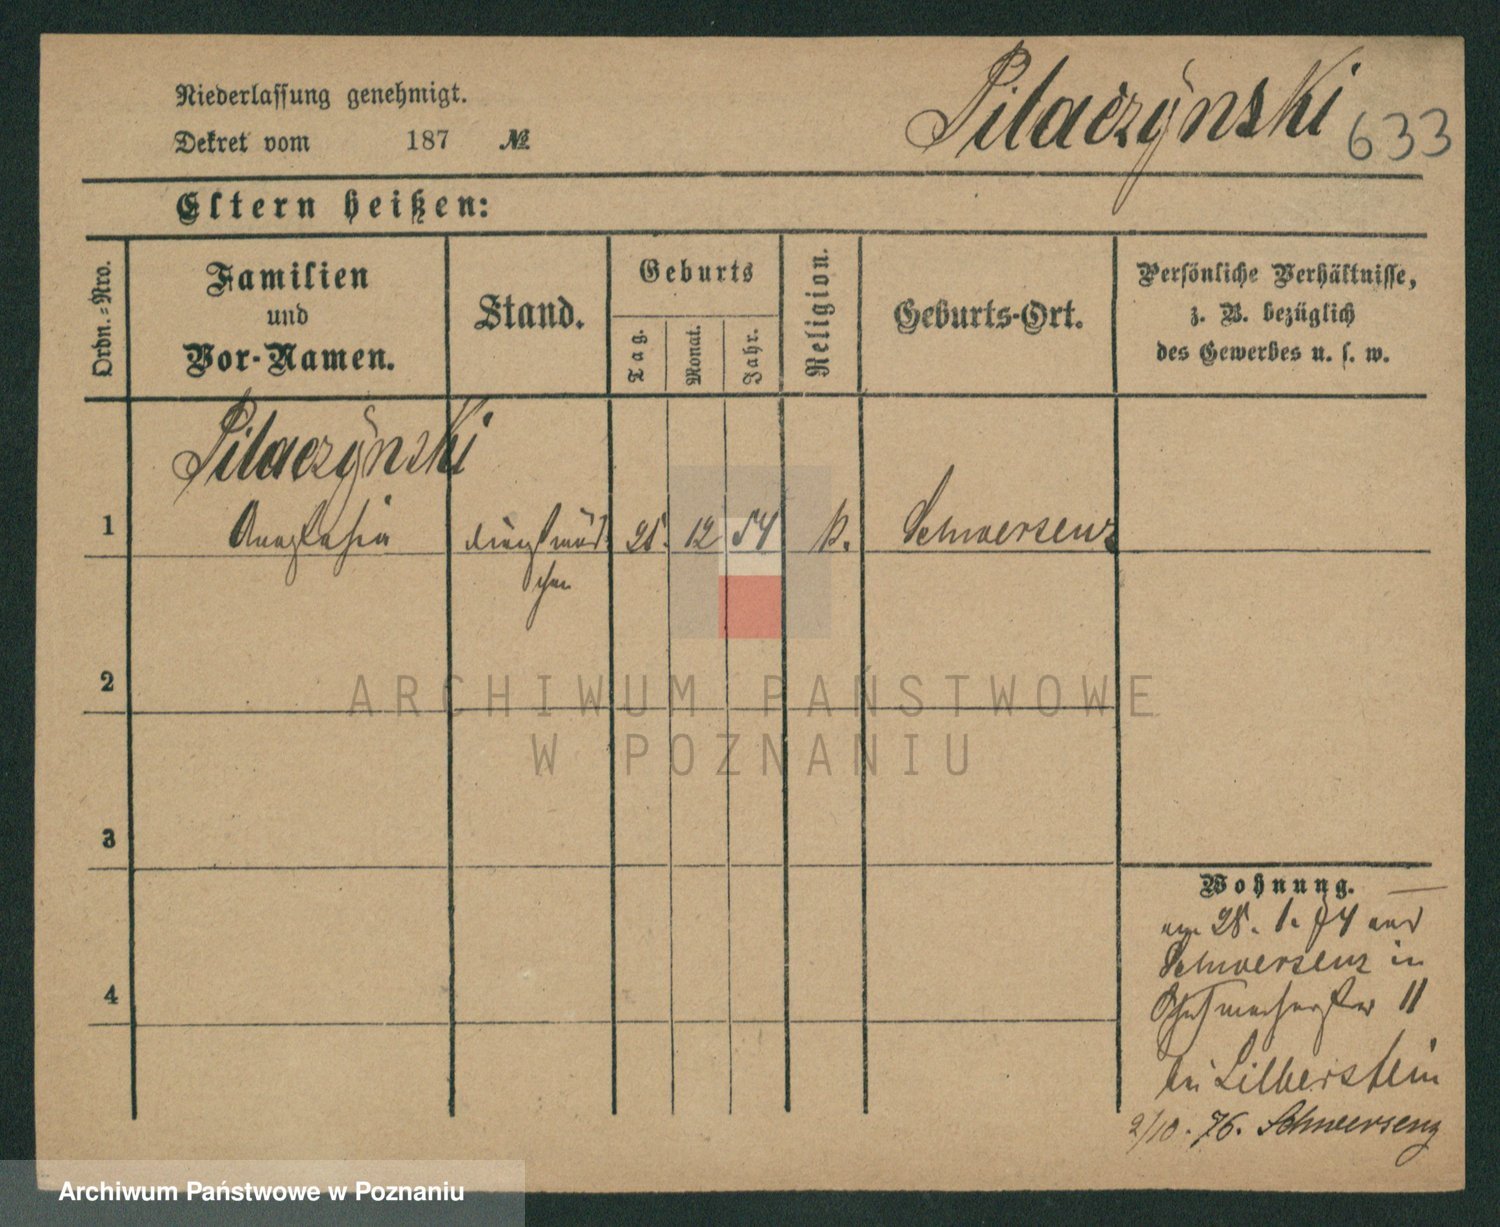 Niederlassung genehmigt.
Dekret vom 187 №
Pilaczýnski 633
Eltern heißen:
Ordn.-Nro.
Familien
und
Vor-Namen.
Stand.
Geburts
Tag.
Monat.
Jahr.
Religion.
Geburts-Ort.
Persönliche Verhältnisse,
z. B. bezüglich
des Gewerbes u. s. w.
Pilaczýnski
1 Anastasia Dienstmäd 25. 12 54 k. Schwersenz
chen
2
3
4
Wohnung.
am 28. 1. 74 aus
Schwersenz in
11
bei Silberstein
2/10. 76. Schwersenz
ARCHIWUM PAŃSTWOWE
W POZNANIU
Archiwum Państwowe w Poznaniu